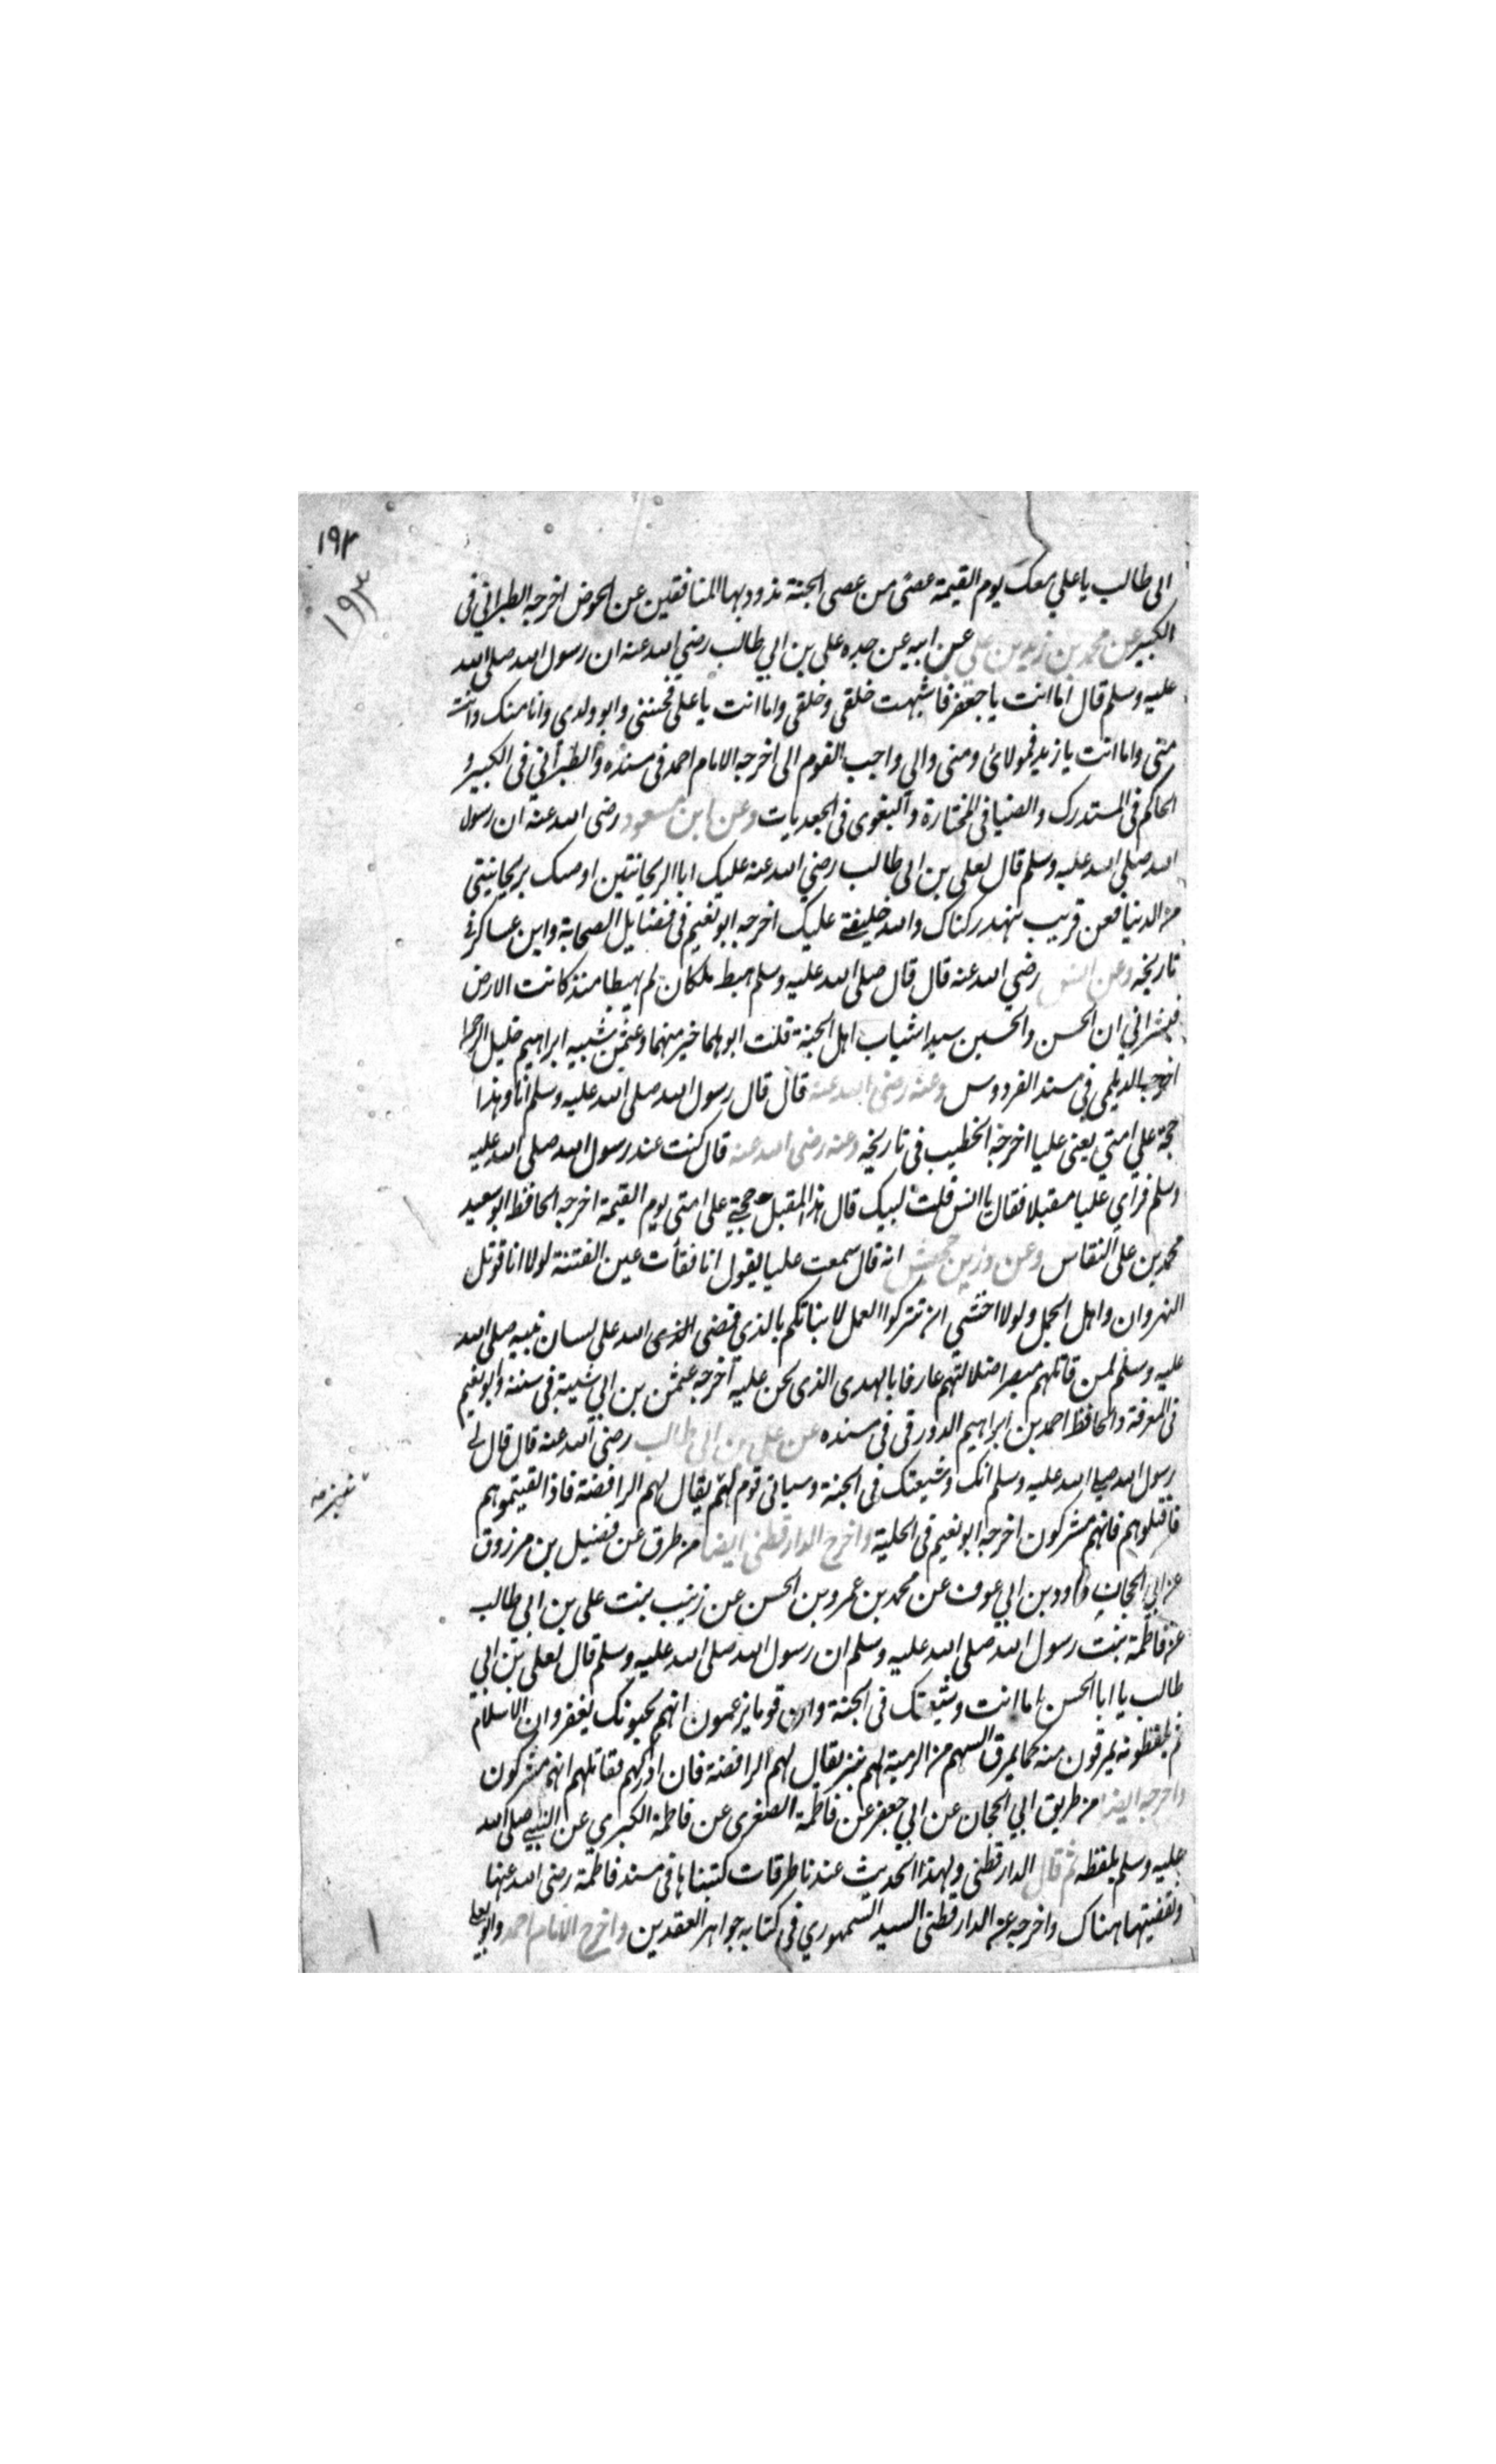 ١٩٣
١٩٣
ابى طالب يا علي معك يوم القيمة عصى من عصى الجنة تذود بها المنافقين عن الحوض اخرجه الطبراني فى
الكبير عن محمد بن زيد بن علي عن ابيه عن جده على بن ابي طالب رضي الله عنه ان رسول الله صلى الله
عليه وسلم قال اما انت يا جعفر فاشبهت خلقى وخلقى واما انت يا على فختنى وابو ولدى وانا منك وانت
منى واما انت يا زيد فمولائ ومنى والي واحب القوم الى اخرجه الامام احمد فى مسنده والطبراني فى الكبير و
الحاكم فى المستدرك والضيا فى المختارة والبغوى فى الجعديات وعن ابن مسعود رضى الله عنه ان رسول
الله صلى الله عليه وسلم قال لعلى بن ابى طالب رضي الله عنه عليك ابا الريحانتين اوصيك بريحانيتى
من الدنيا فعن قريب ينهد ركناك والله خليفتى عليك اخرجه ابو نعيم فى فضايل الصحابة وابن عساكر فى
تاريخه وعن انس رضي الله عنه قال قال صلى الله عليه وسلم هبط ملكان لم يهبطا منذ كانت الارض
فبشراني ان الحسن والحسين سيدا شباب اهل الجنة قلت ابوهما خير منهما وعثمن شبيه ابراهيم خليل الرحمن
اخرجه الديلمى فى مسند الفردوس وعنه رضى الله عنه قال قال رسول الله صلى الله عليه وسلم انا وهذا
حجة على امتي يعنى عليا اخرجه الخطيب فى تاريخه وعنه رضى الله عنه قال كنت عند رسول الله صلى الله عليه
وسلم فراي عليا مقبلا فقال يا انس قلت لبيك قال هذا المقبل حجتي على امتى يوم القيمة اخرجه الحافظ ابو سعيد
محمد بن على النقاس وعن وزر بن حبيش انه قال سمعت عليا يقول انا فقأت عين الفتنة لولا انا قوتل
النهروان واهل الجمل ولولا اخشى ان تتركوا العمل لانباتكم بالذي قضى الذى الله على لسان نبيه صلى الله
عليه وسلم لمن قاتلهم مبصرا ضلالتهم عارفا بالهدى الذى نحن عليه اخرجه عثمن بن ابي شيبة فى سننه وابو نعيم
فى المعرفة والحافظ احمد بن ابراهيم الدورقى فى مسنده عن علي بن ابى طالب رضى الله عنه قال قال لى
رسول الله صلى الله عليه وسلم انك وشيعتك فى الجنة وسياتى قوم لهم يقال لهم الرافضة فاذا لقيتموهم
نبز صه
فاقتلوهم فانهم مشركون اخرجه ابو نعيم فى الحلية واخرج الدارقطنى ايضا من طرق عن فضيل بن مرزوق
عن ابي الحجاف داود بن ابي عوف عن محمد بن عمرو بن الحسن عن زينب بنت على بن ابى طالب
عن فاطمة بنت رسول الله صلى الله عليه وسلم ان رسول الله صلى الله عليه وسلم قال لعلى بن ابي
طالب يا ابا الحسن اما انت وشيعتك فى الجنة وان قوما يزعمون انهم يحبونك يغفرون الاسلام
ثم يلفظونه يمرقون منه كما يمرق السهم من الرمية لهم نبز يقال لهم الرافضة فان ادركهم فقاتلهم انهم مشركون
واخرجه ايضا من طريق ابي الحجاف عن ابي جعفر عن فاطمة الصغرى عن فاطمة الكبرى عن النبي صلى الله
عليه وسلم بلفظه ثم قال الدارقطنى ولهذا الحديث عندنا طرقات كتبناها فى مسند فاطمة رضى الله عنها
ولفقيتها هناك واخرجه عن الدارقطنى السيد السمهوري فى كتابه جواهر العقدين واخرج الامام احمد وابو يعلى